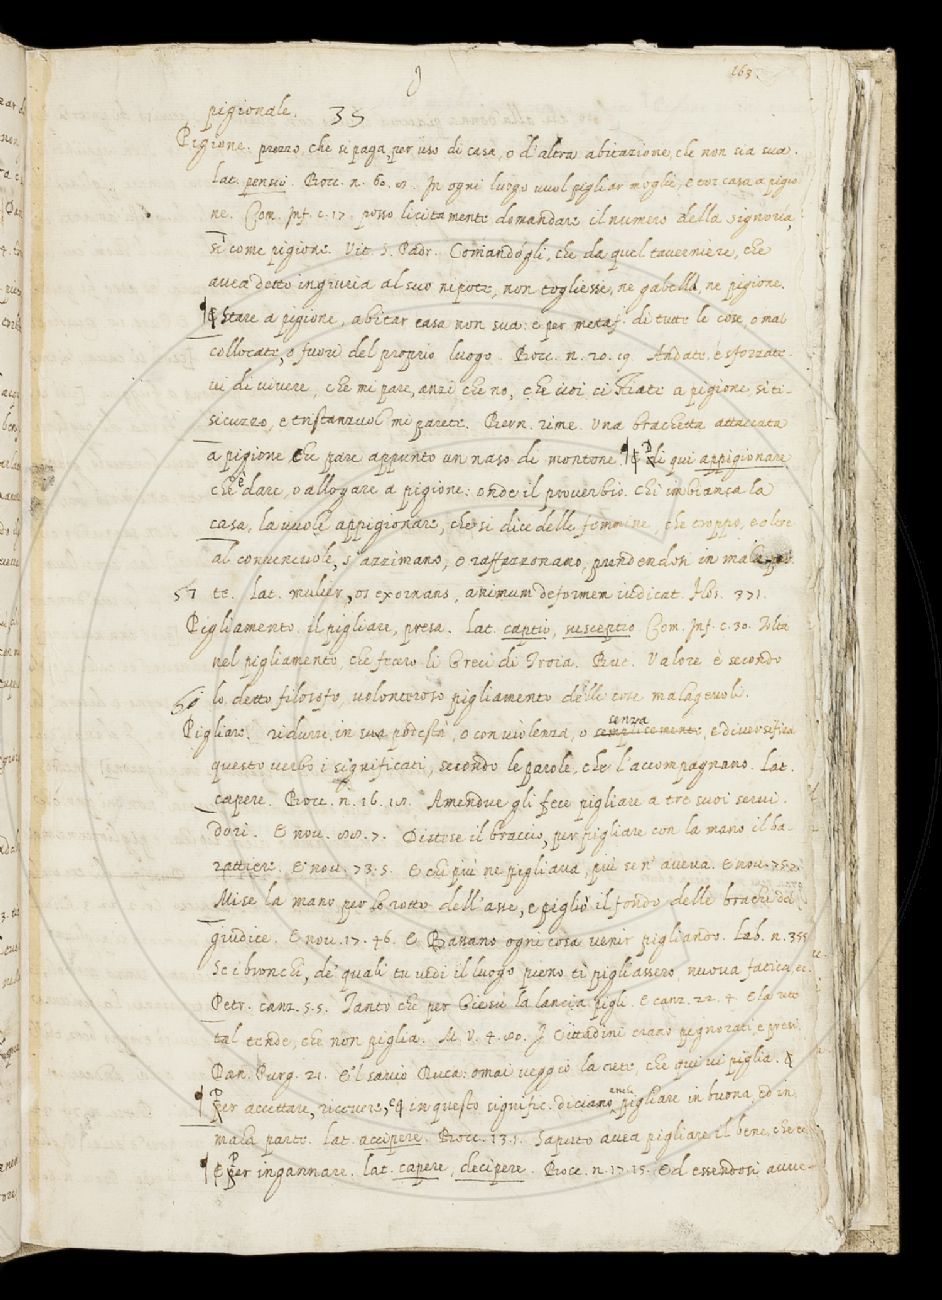 163
pigionale.
35
Pigione. prezzo, che si paga, per uso di casa, o d'altra abitazione, che non sia sua.
Lat. pensio. Bocc. n. 60. In ogni luogo vuol pigliar moglie, e tor casa a pigio
ne. Com. Inf. c. 17. posso licitamente domandare il numero della signoria,
si come pigione. Vit. S. Padr. Comandógli, che da quel taverniere, che
avea detto ingiuria al suo nipote, non togliesse, ne gabella, ne pigione.
Stare a pigione, abitar casa non sua: e per metaf. di tutte le cose, o mal
collocate, o fuori del proprio luogo. Bocc. n. 20. 19. Andate, e sforzate-
vi di vivere, che mi pare, anzi che no, che voi ci stiate a pigione, sì ti-
sicuzzo, e tristanzuol mi parete. Bern. rime. Una brachetta attaccata
a pigione che pare appunto un naso di montone. Di qui appigionare
che è dare, o allogare a pigione: onde il proverbio. Chi imbianca la
casa, la vuole appigionare, che si dice delle femmine, che troppo, e oltre
al convenevole, s'azzimano, o raffazzonano, prendendosi in mala par
57 te. Lat. mulier, os exornans, animum deformem indicat. Flos. 371.
Pigliamento. il pigliare, presa. Lat. captio, susceptio Com. Inf. c. 30. Molta
nel pigliamento, che fecero li Greci di Troia. But. Valore è secondo
lo detto filosofo, volonteroso pigliamento delle cose malagevoli.
senza
Pigliare. ridurre in sua podestà, o con violenza, o semplicemente, e diversifica
questo verbo i significati, secondo le parole, che l'accompagnano. Lat.
capere. Bocc. n. 16. Amendue gli fece pigliare a tre suoi servi-
dori. E nov. 7. Distese il braccio, per pigliare con la mano il ba-
rattiere. E nov. 73. 5. E chi più ne pigliava, più se n' aveva. E nov. 75.
Mise la mano per lo rotto dell'asse, e pigliò il fondo delle brache del
giudice. E nov. 17. 46. E Bassano ogni cosa venir pigliando. Lab. n. 355
Se i bronchi, de' quali tu vedi il luogo pieno, ti pigliassero nuova fatica, ec.
Petr. canz. 5. 5. Tanto che per Giesù la lancia pigli. E canz. 22. 4. E la rete
tal tende, che non piglia. M. V. 4. I Cittadini erano pegnorati, e presi.
Dan. Purg. 21. E'l savio Duca: omai veggio la rete, che qui vi piglia.
Per accettare, ricevere, e in questo signific. diciamo anche pigliare in buona, ed in
mala parte. Lat. accipere. Bocc. 13. 1. Saputo avea pigliare il bene, che
E Per ingannare. Lat. capere, decipere. Bocc. n. 17. 15. Ed essendosi avve-